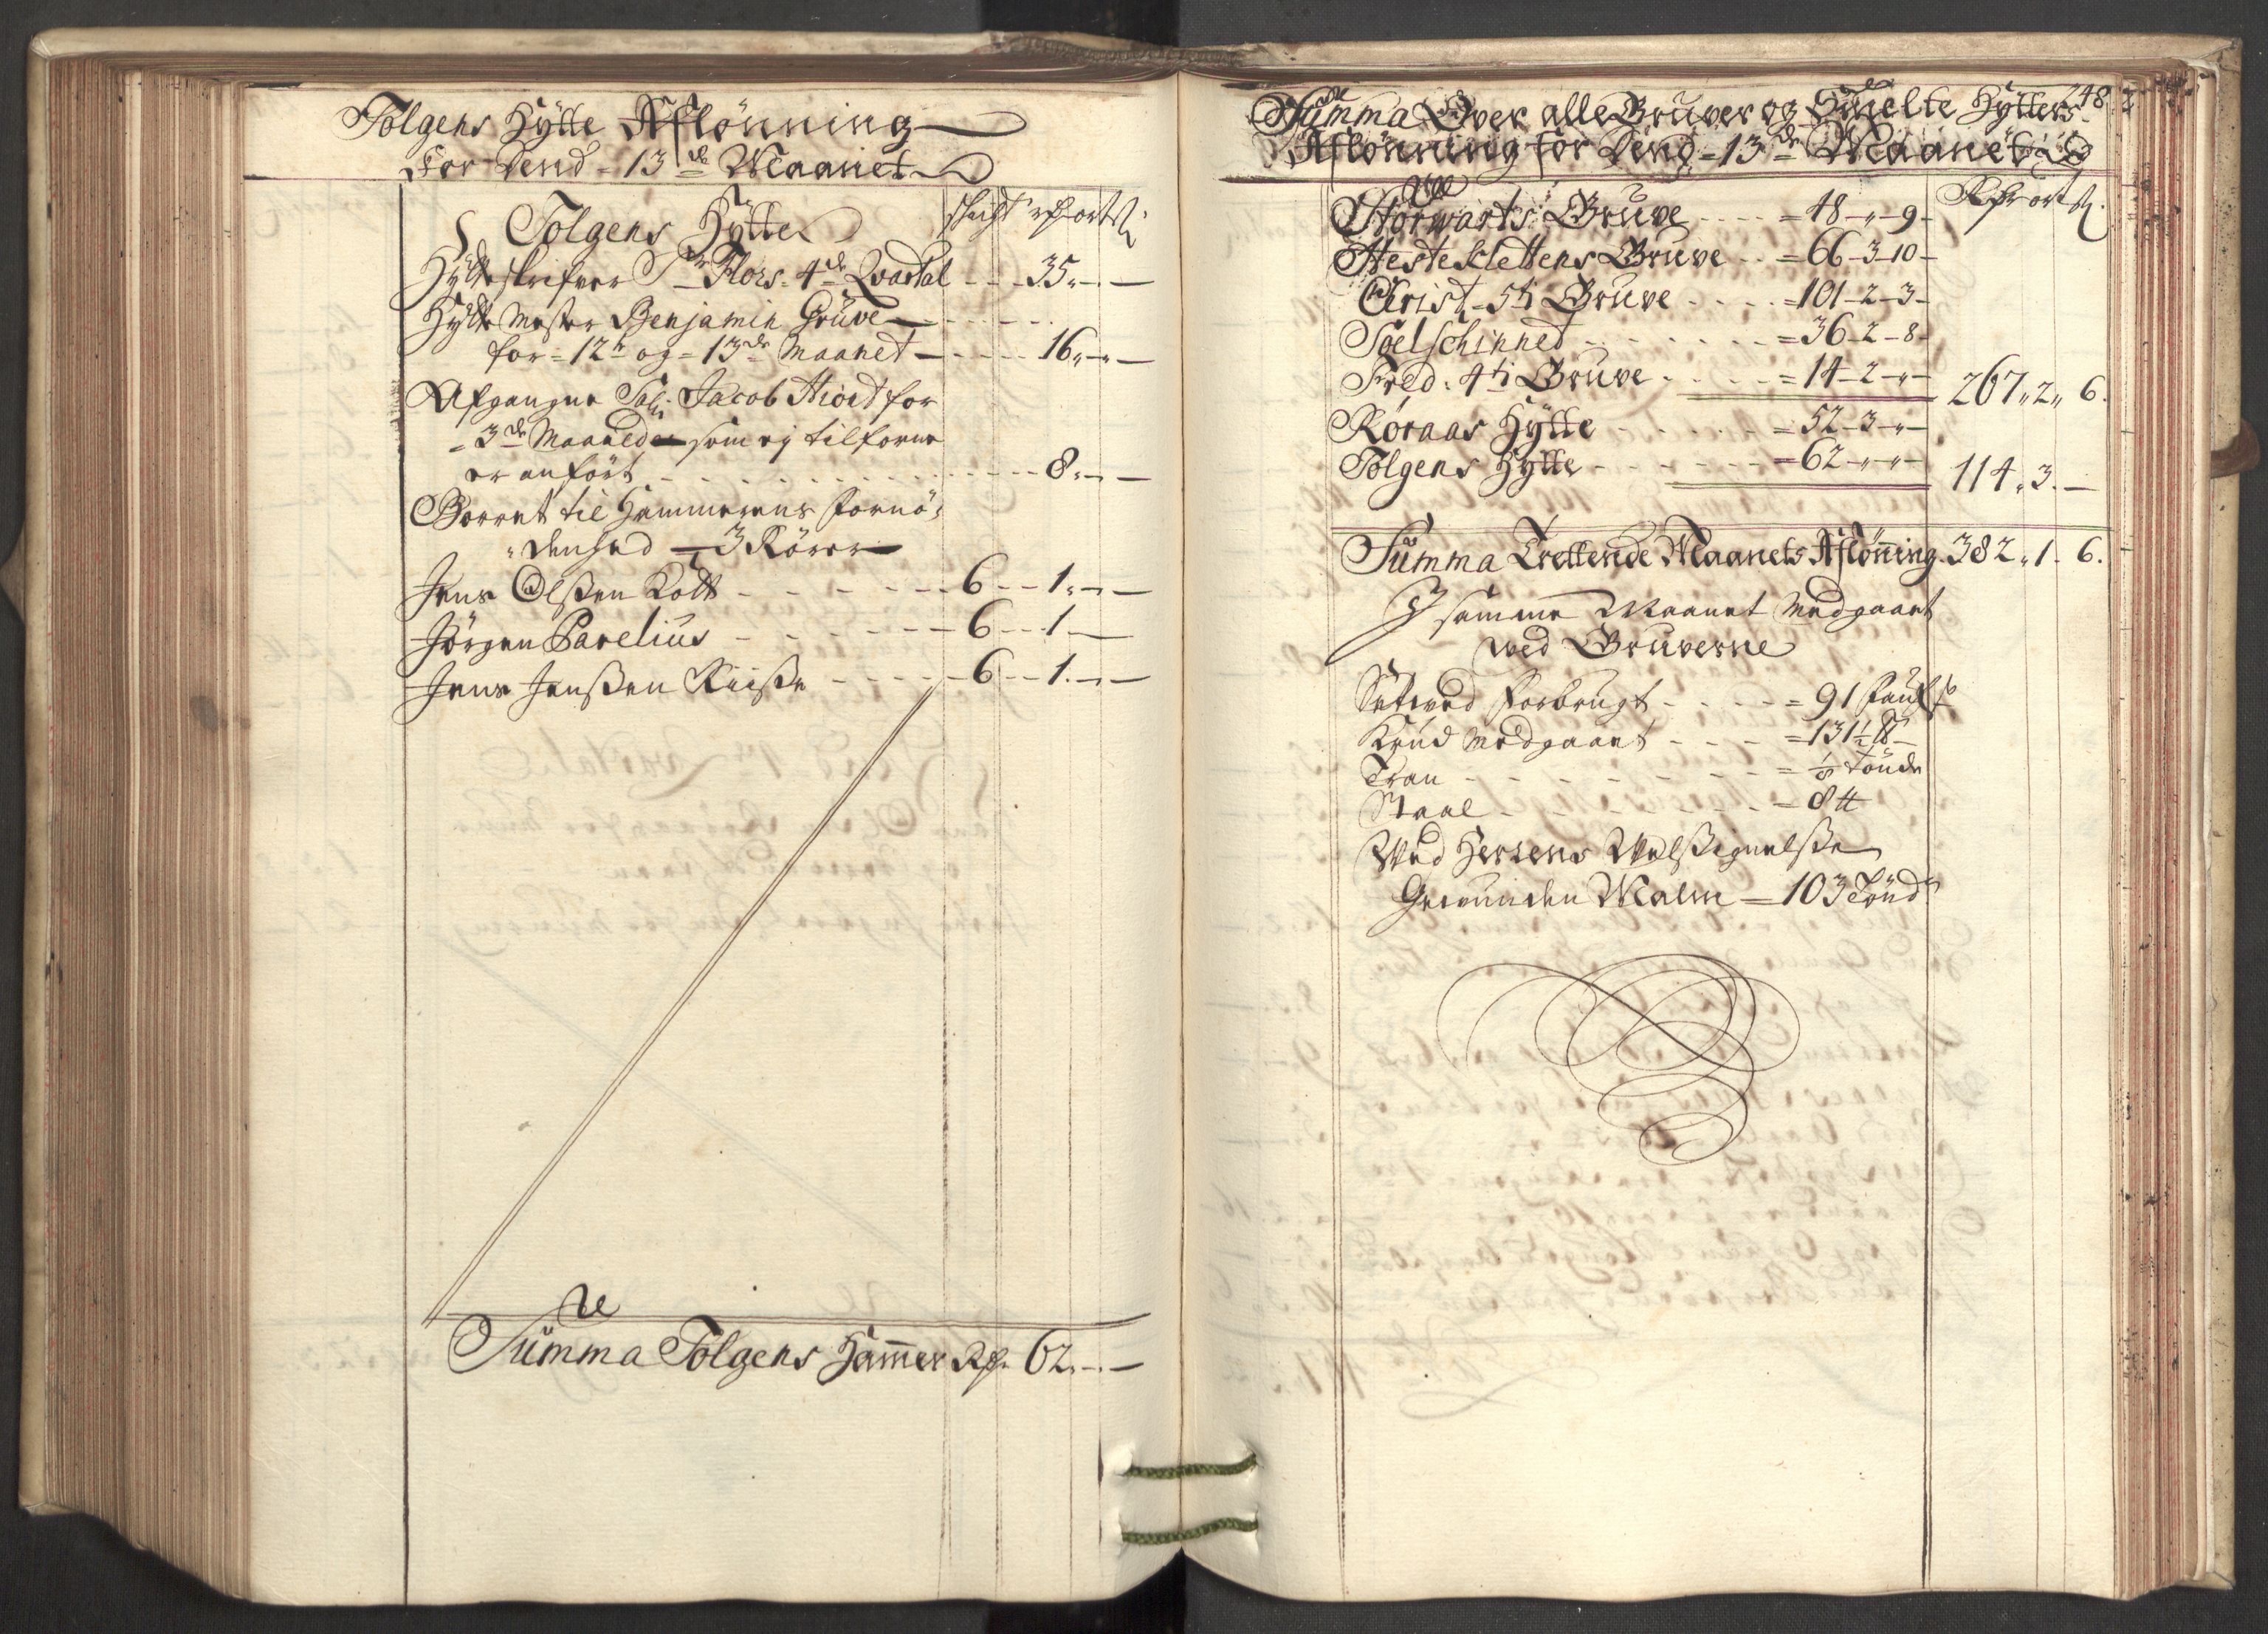 Tolgens Hÿtte Aflönning
For Dend = 13de Maanet
Tolgens Hÿtte
Hÿtteskrifver Sr Flors. 4de Qvartal - - - 35,,-.-
Hÿtte Mester Benjamin Grüve - - - -
for = 12te og = 13de Maanet - - - - 16,,-,,-
Afgangne Sal: Jacob Hiort for
= 3de Maaneder som ej tilforne
er anfört - - - - - - 8,,-,-
Borret til Hammerens Fornö,
,,denhed = 3 Rörer
Jens Olßen Kolt - - - - - 6 - - 1,,-,-
Jörgen Parelius - - - - - 6 - - 1. -
Jens Jenßen Riiße - - - - 6 - - 1.-,-
Summa Tolgens Ham̄er Rdr. 62.-.-
248
Summa Over alle Gruver og Smelte Hÿtters
Aflönning for Dend = 13de Maanet
Rdr ort ß.
Storwarts Gruve - - - - = 48 - ,, - 9 -
Hesteklettens Gruve - - = 66 - 3 - 10 -
Christ. 5ti Gruve - - - - = 101 - 2 - 3 -
Soelschinned - - - - - = 36 - 2 - 8 -
Fred: 4ti Gruve - - - - = 14 - 2 - ,, - 267,, 2,, 6.
Röraas Hÿtte - - - - - = 52 - 3 - ,, -
Tolgens Hÿtte - - - - - = 62 - ,, - ,, - 114,, 3. -
Summa Trettende Maanets Aflön̄ing. 382,, 1. 6.
I samme Maanet Medgaaet
ved Gruverne
Setved Forbrugt - - - - = 91 Faufn
Krud Medgaaet - - - = 131½ ℔ -
Tran - - - - - - - = ⅛ Tönde
Staal - - - - - - - = 8 ℔
Ved Herrens Velßignelße
Gewunden Malm = 103 Töndr